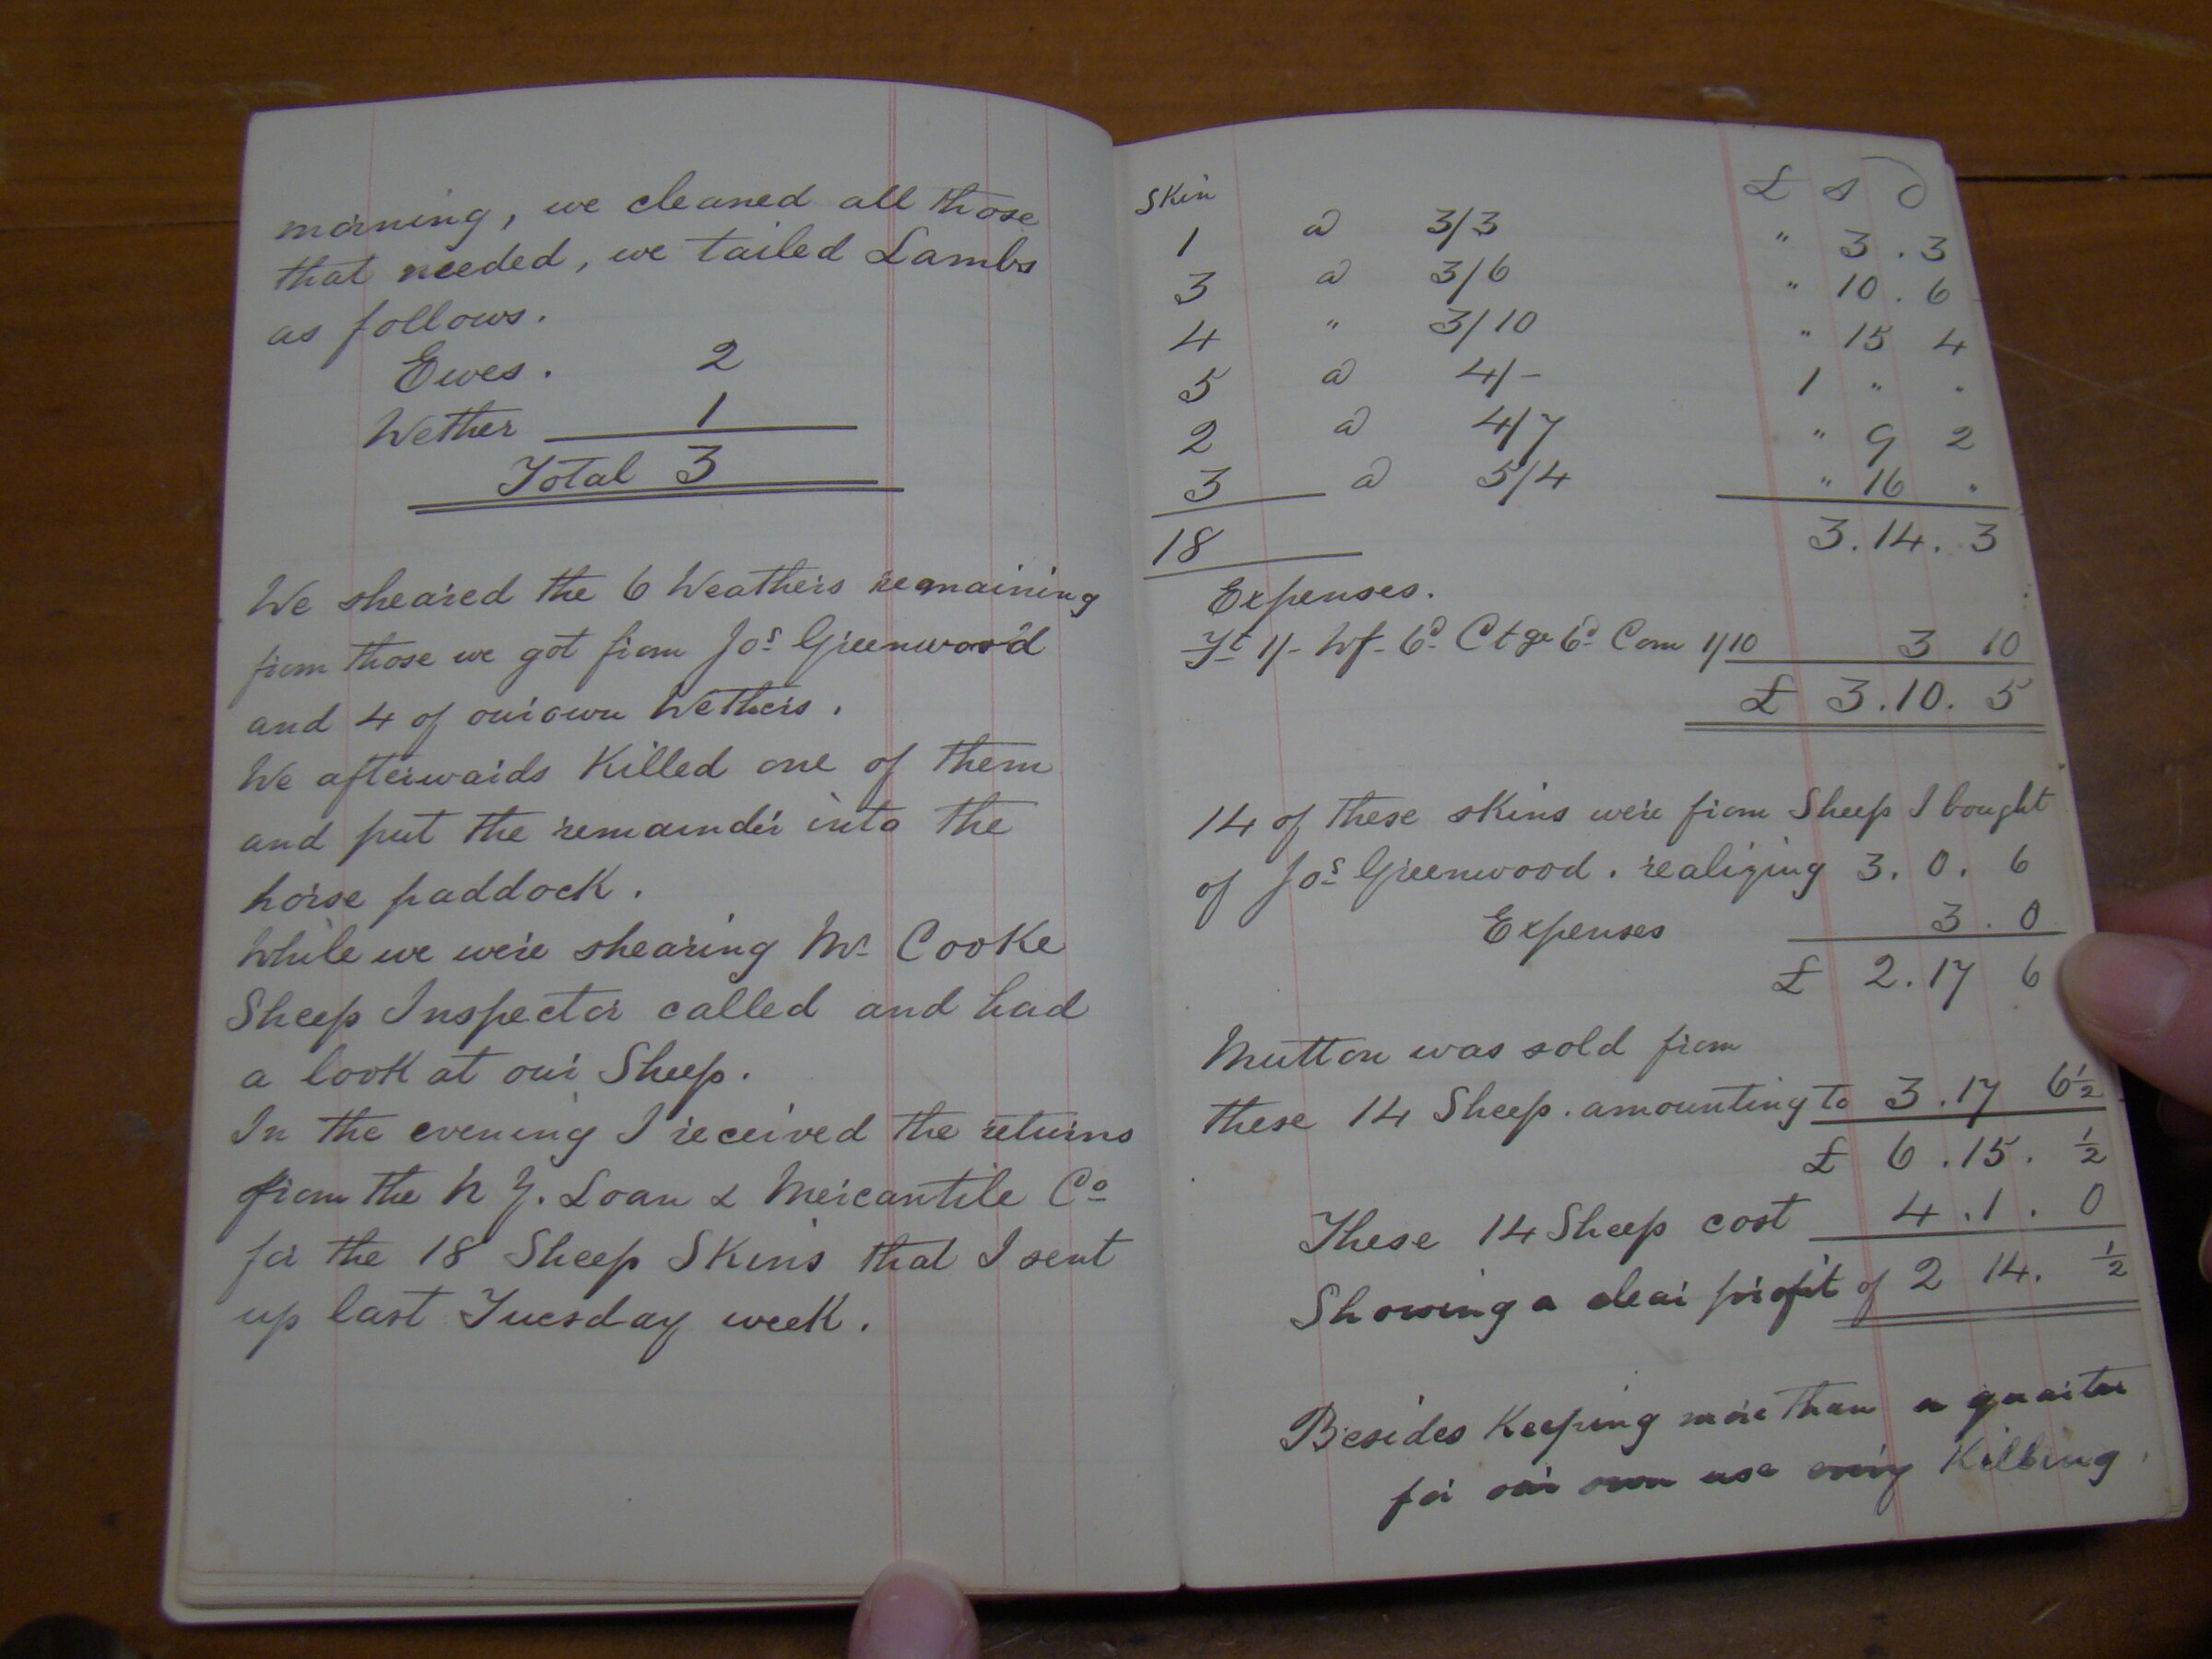 morning, we cleaned all those
that needed, we tailed Lambs
as follows.
Ewes. 2
Wether 1
Total 3
We sheared the 6 Weathers remaining
from those we got from Jos Greenwood
and 4 of our own Wethers.
We afterwards Killed one of them
and put the remainder into the
horse paddock.
While we were shearing Mr Cooke
Sheep Inspector called and had
a look at our Sheep.
In the evening I received the returns
from the N Z. Loan & Mercantile Co
for the 18 Sheep Skins that I sent
up last Tuesday week.
Skin £ s d
1 @ 3/3 " 3 . 3
3 @ 3/6 " 10 . 6
4 " 3/10 " 15 4
5 @ 4/- 1 " "
2 @ 4/7 " 9 2
3 @ 5/4 " 16 "
18 3.14.3
Expenses.
Ft 1/- Wf- 6d Ctge 6d Com 1/10 3 10
£ 3.10.5
14 of these skins were from Sheep I bought
of Jos Greenwood. realizing 3.0.6
Expenses 3.0
£ 2.17 6
Mutton was sold from
these 14 Sheep. amounting to 3.17 6½
£ 6.15. ½
These 14 Sheep cost 4.1.0
Showing a clear profit of 2 14. ½
Besides Keeping more than a quarter
for our own use every Killing.